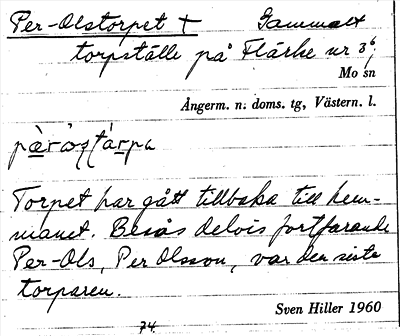 Per-Olstorpet + Gammalt
torpställe på Flärke nr 3⁶,
Mo sn
Ångerm. n. doms. tg, Västern. l.
Torpet har gått tillbaka till hem-
manet. Besås delvis fortfarande
Per-Ols, Per Olsson, var den siste
torparen.
Sven Hiller 1960
74.